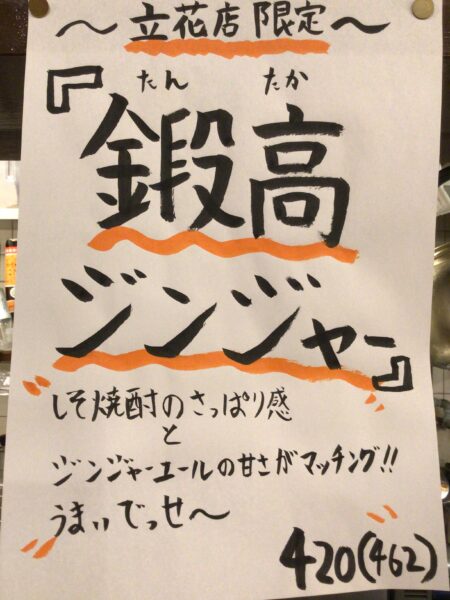 ～立花店限定～
たん たか
『鍛高
ジンジャー』
しそ焼酎のさっぱり感
と
ジンジャーエールの甘さがマッチング!!
うまいでっせ～
420(462)